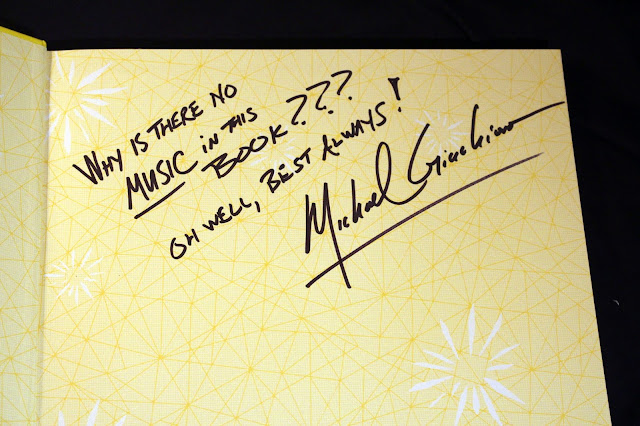 WHY IS THERE NO
MUSIC IN THIS
BOOK???
OH WELL, BEST ALWAYS!
Michael Giacchino